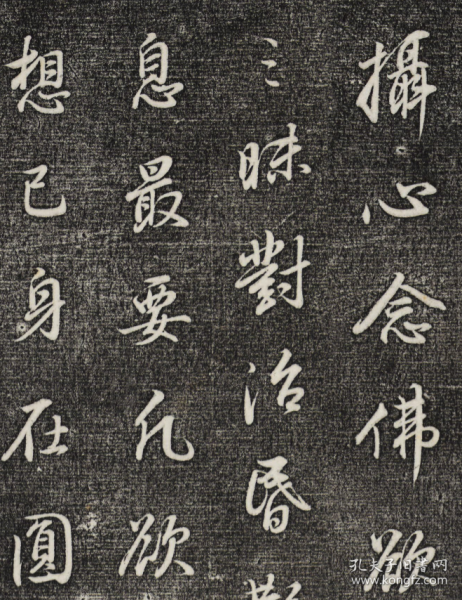 攝心念佛欲
三昧對治昏
息最要凡欲
想已身在圓
孔夫子旧书网
www.kongfz.com